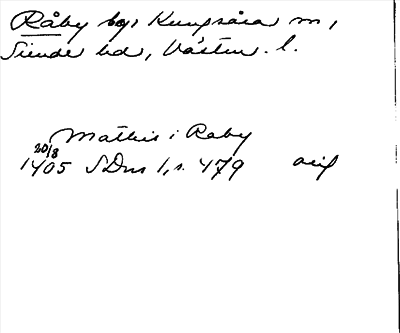 Råby by, Kungsåra sn,
Siende hd, Västm. l.
Mathis i Raby
20/8
1405 SDns 1, s. 479 orig